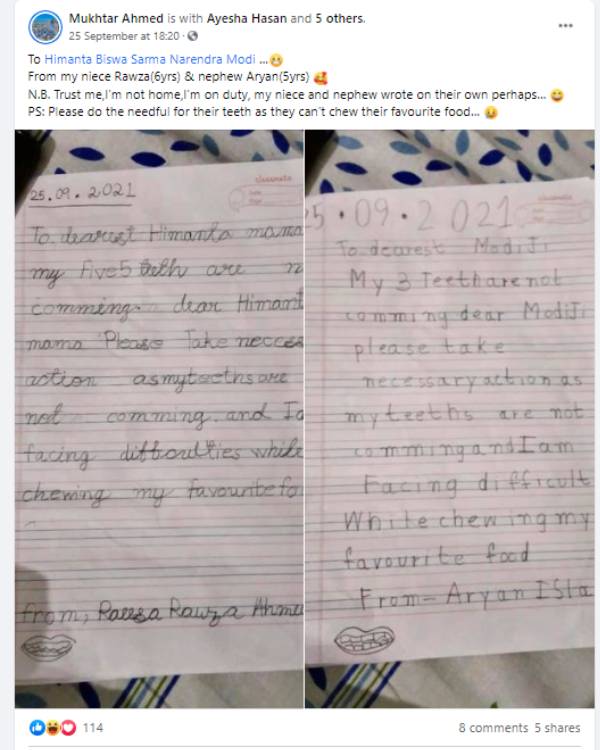 Mukhtar Ahmed is with Ayesha Hasan and 5 others.
25 September at 18:20 ·
To Himanta Biswa Sarma Narendra Modi ...😁
From my niece Rawza(6yrs) & nephew Aryan(5yrs) 🥰
N.B. Trust me,I'm not home,I'm on duty, my niece and nephew wrote on their own perhaps... 😄
PS: Please do the needful for their teeth as they can't chew their favourite food... 😥
classmate
25.09.2021
To dearest Himanta mama
my five5 teeth are n
comming. dear Himant
mama Please Take necces
action asmyteeths are
not comming. and Ia
facing difficulties while
chewing my favourite fo
from, Raeesa Rawza Ahme
5.09.2021
To dearest ModiJi
My 3 Teeth are not
comming dear ModiJi
please take
necessary action as
my teeths are not
comming and I am
Facing difficult
While chewing my
favourite food
From- Aryan ISla
114
8 comments 5 shares